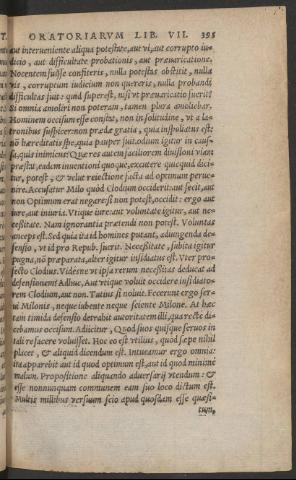 ORATORIARVM LIB. VII. 395
aut interueniente aliqua potestate, aut vi, aut corrupto iu-
dicio, aut difficultate probationis, aut præuaricatione.
Nocentem fuisse confiteris, nulla potestas obstitit, nulla
vis, corruptum iudicium non quereris, nulla probandi
difficultas fuit: quid superest, nisi vt præuaricatio fuerit?
Si omnia amoliri non poteram, tamen plura amoliebar.
Hominem occisum esse constat, non in solitudine, vt à la-
tronibus suspicer: non prædæ gratia, quia inspoliatus est:
nō hæreditatis spe, quia pauper fuit. odium igitur in caus-
sa, quis inimicus? Quæ res autem faciliorem diuisioni viam
præstat, eadem inuentioni quoque, excutere quicquid dici-
tur, potest, & velut reiectione facta ad optimum perue-
nire. Accusatur Milo quòd Clodium occiderit: aut fecit, aut
non. Optimum erat negare: si non potest, occidit: ergo aut
iure, aut iniuria. Vtique iure: aut voluntate igitur, aut ne-
cessitate. Nam ignorantia prætendi non potest. Voluntas
anceps est. Sed quia ita id homines putant, adiungenda de-
fensio, vt id pro Repub. fuerit. Necessitate, subita igitur
pugna, nō præparata, alter igitur insidiatus est. Vter pro-
fectò Clodius. Vidésne vt ipsa rerum necessitas deducat ad
defensionem? Adhuc, Aut vtique voluit occidere insidiato-
rem Clodium, aut non. Tutius si noluit. Fecerunt ergo ser-
ui Milonis, neque iubente neque sciente Milone. At hæc
tam timida defensio detrahit auctoritatem illi, qua rectè di-
cebamus occisum. Adiicitur, Quod suos quisque seruos in
tali re facere voluisset. Hoc eo est vtilius, quòd sæpe nihil
placet, & aliquid dicendum est. Intueamur ergo omnia:
ita apparebit aut id quod optimum est, aut id quod minimè
malum. Propositione aliquando aduersarij vtendum: &
esse nonnunquam communem eam suo loco dictum est.
Multis millibus versuum scio apud quosdam esse quæsi-
tum,